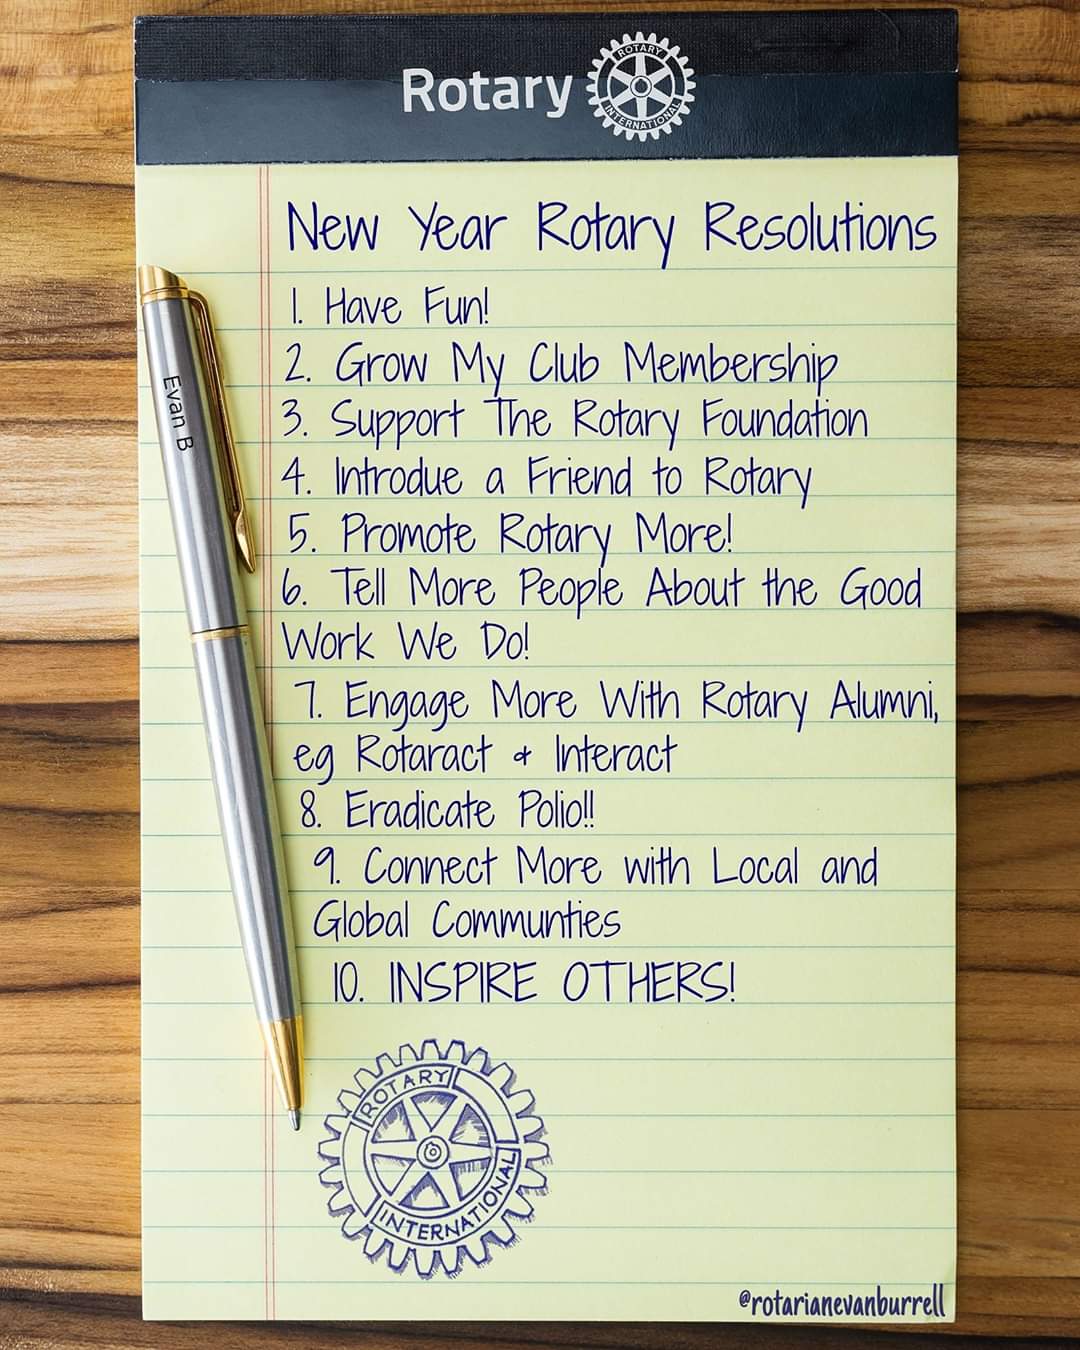 Rotary
ROTARY
INTERNATIONAL
New Year Rotary Resolutions
1. Have Fun!
2. Grow My Club Membership
3. Support The Rotary Foundation
4. Introdue a Friend to Rotary
5. Promote Rotary More!
6. Tell More People About the Good
Work We Do!
7. Engage More With Rotary Alumni,
eg Rotaract & Interact
8. Eradicate Polio!!
9. Connect More with Local and
Global Communties
10. INSPIRE OTHERS!
Evan B
ROTARY
INTERNATIONAL
@rotarianevanburrell